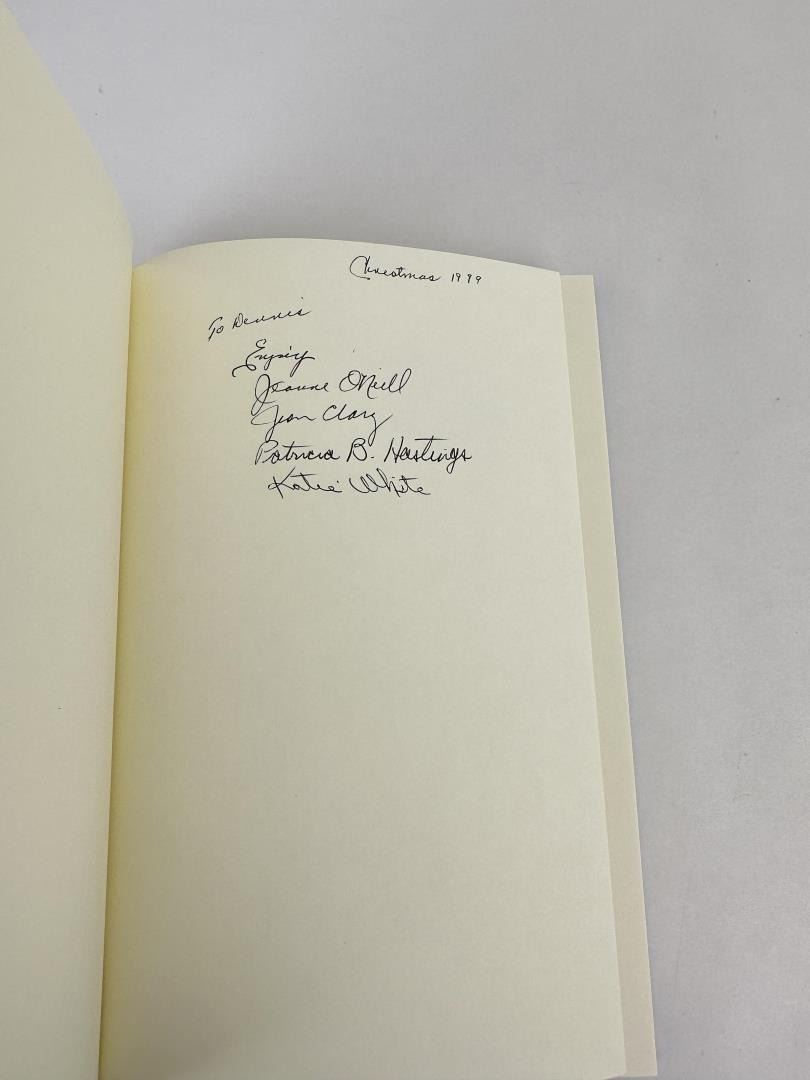 Christmas 1999
To Dennis
Enjoy
Jeanne O'Neill
Jean Clary
Patricia B. Hastings
Katie White